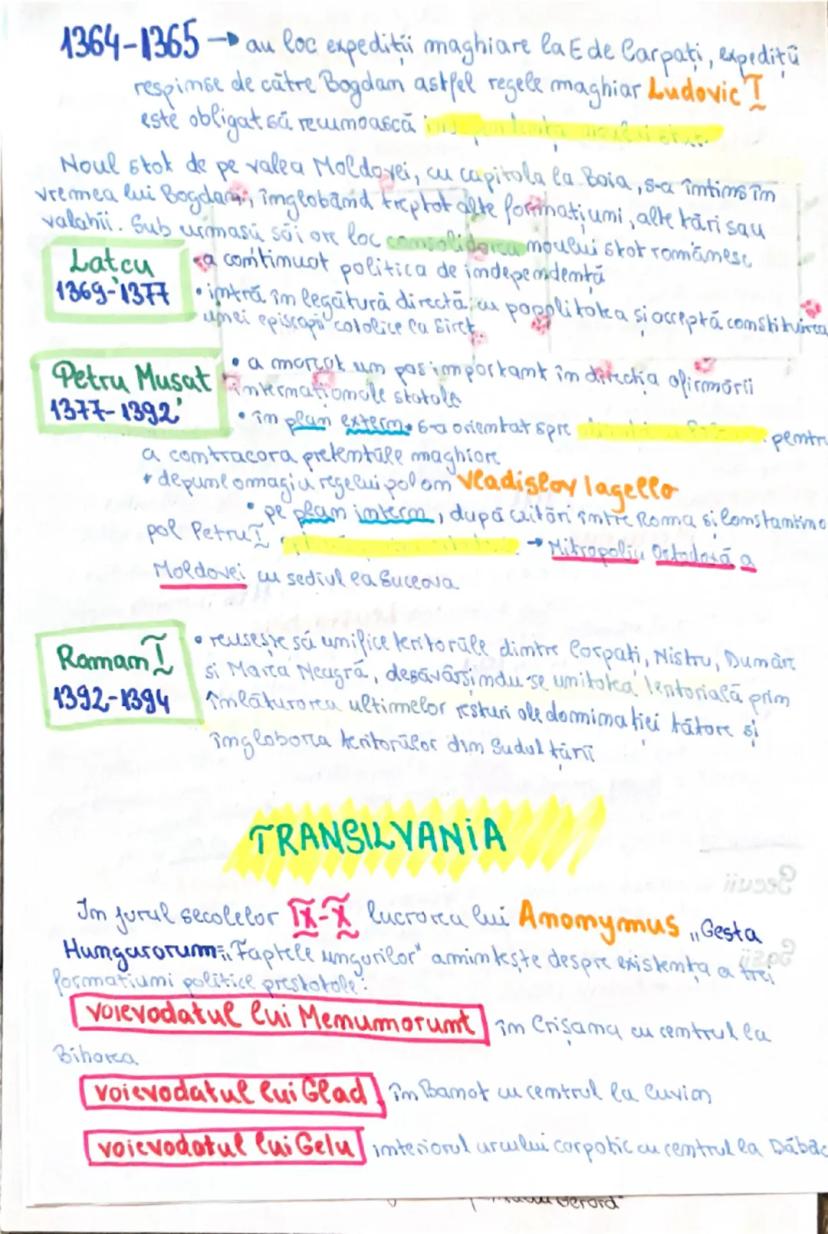 1364-1365 → au loc expediții maghiare la E de Carpați, expediții
respinse de către Bogdan astfel regele maghiar Ludovic I
este obligat să recunoască
Noul stat de pe valea Moldovei, cu capitala la Baia, s-a întins în
vremea lui Bogdan, înglobând treptat alte formațiuni, alte țări sau
valahii. Sub urmașii săi are loc consolidarea noului stat românesc
Lațcu
1369-1377
• a continuat politica de independență
• intră în legătură directă cu papalitatea și acceptă constituirea
unei episcopii catolice la Siret
Petru Mușat
1377-1392
• a marcat un pas important în direcția afirmării
internaționale statale
• în plan extern s-a orientat spre pentru
a contracara pretențiile maghiare
• depune omagiu regelui polon Vladislav Iagello
• pe plan intern, după căutări între Roma și Constantino
pol Petru I → Mitropoliu Ortodoxă a
Moldovei cu sediul la Suceava
Roman I
1392-1394
• reușește să unifice teritoriile dintre Carpați, Nistru, Dunăre
și Marea Neagră, desăvârșindu-se unitatea teritorială prin
înlăturarea ultimelor resturi ale dominației tătare și
îngloborea teritoriilor din Sudul țării
TRANSILVANIA
În jurul secolelor IX-X lucrarea lui Anonymus „Gesta
Hungarorum" „Faptele ungurilor" amintește despre existența a trei
formațiuni politice prestatale:
voievodatul lui Menumorunt în Crișana cu centrul la
Bihorea
voievodatul lui Glad în Banat cu centrul la Cuvin
voievodatul lui Gelu interiorul arcului carpatic cu centrul la Dăbâc